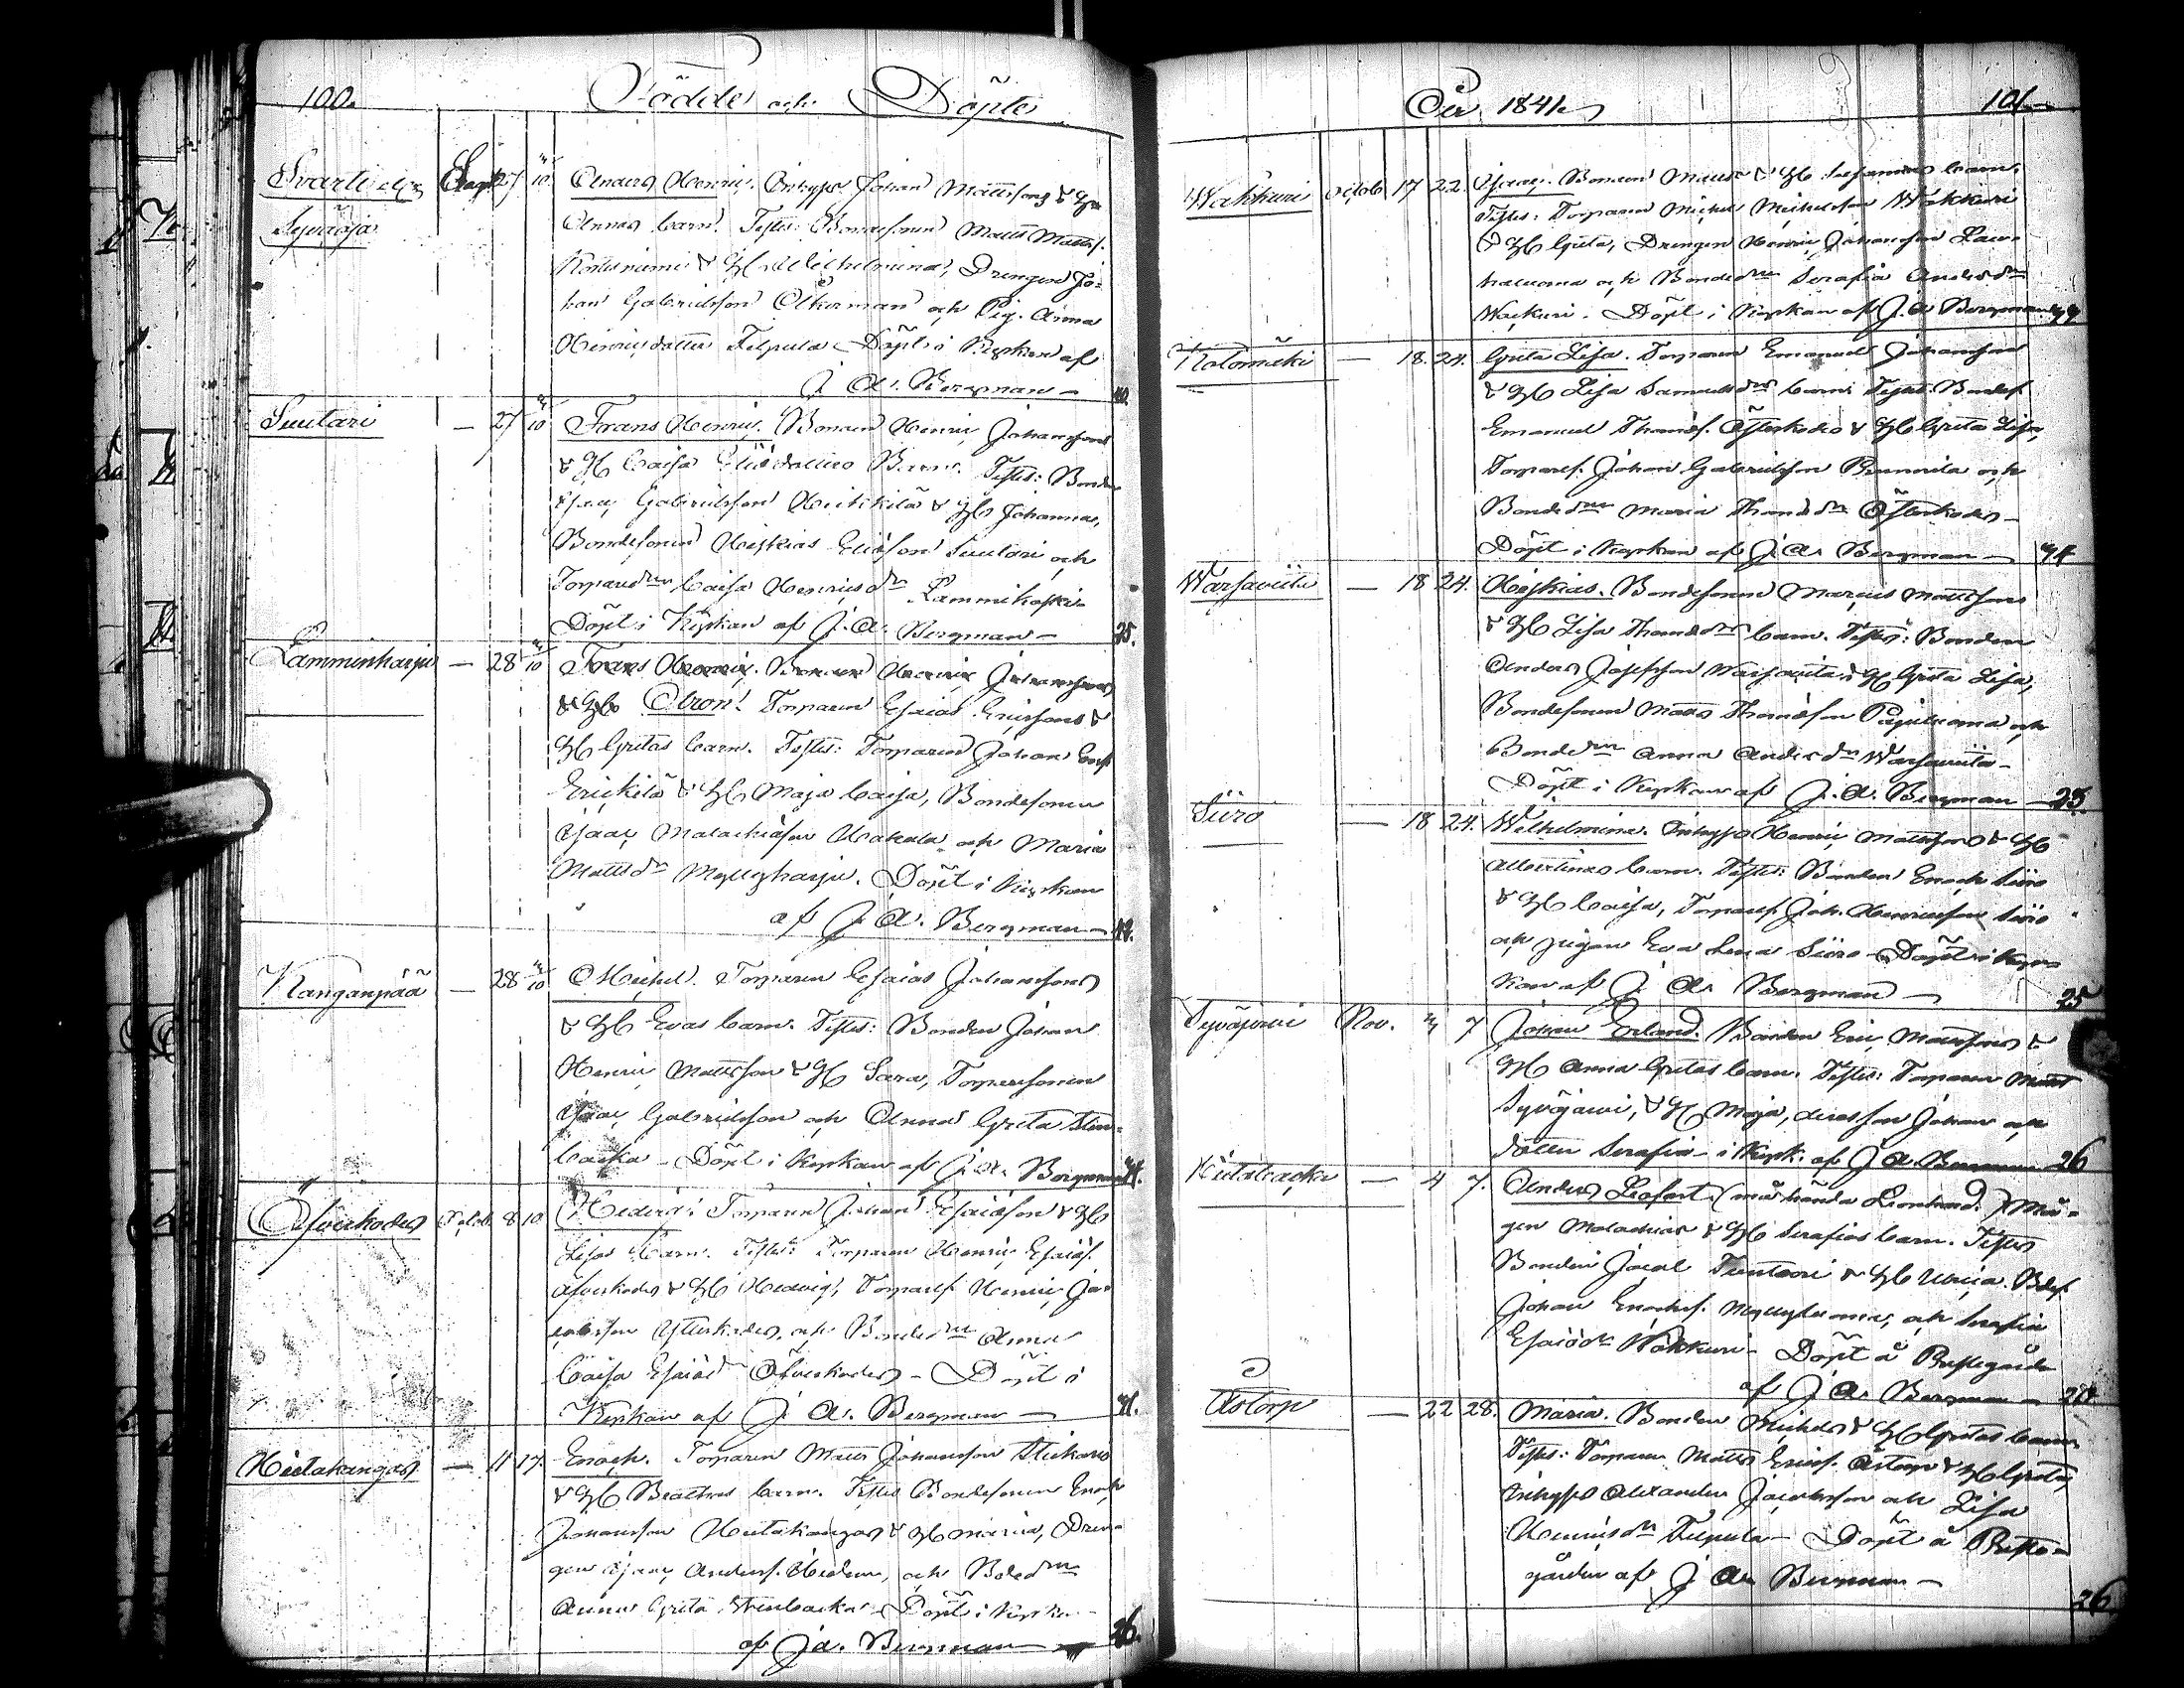 100.
Födde och Döpte
Svartioja Sept 27 3/10 Anders Henric. Inhyses Johan Mattssons & Hu
Syväoja Annas barn. Testes: Bondesonen Matts Matts.
& H. Wilhelmina, Drengen Jo-
han Gabrielsson Åkerman och Pig. Anna
Henricsdotter Filpula. Döpt i Kyrkan af
J. A. Bergman — 40.
Suutari — 27 3/10 Frans Henric. Bonden Henric Johanssons
& H. Caisa Eliædotters Barn. Testes: Bonden
Isaac Gabrielsson Heikkilä & H. Johanna,
Bondesonen Hiskias Eliæson Suutari och
Torparedrn Caisa Henricsdr Lammikoski.
Döpt i Kyrkan af J. A. Bergman — 25.
Lamminharju — 28 3/10 Frans Henric. Bonden Henric Johanssons
& H. Aron. Torparen Esaias Ericssons &
H. Gretas barn. Testes: Torparen Johan
Erickilä & H. Maja Caisa, Bondesonen
Isaac Malachiæson Hakala och Maria
Mattsdr Myllyharju. Döpt i Kyrkan
af J. A. Bergman — 42.
Kanganpää — 28 3/10 Michel. Torparen Esaias Johanssons
& H. Evas barn. Testes: Bonden Johan
Henric Mattsson & H. Sara, Torparesonen
Isaac Gabrielsson och Anna Greta Sten-
backa. Döpt i Kyrkan af J. A. Bergman 41.
Öfverkoders Octob. 8 10 Hedvig. Torparen Johan Esaiæson & H.
Lisas Barn. Testes: Torparen Henric Esaiæs.
Öfverkoders & H. Hedvig, Torpares. Henric Ja-
cobsson Ytterkoders, och Bondedrn Anna
Caisa Esaiædr Öfverkoders. Döpt i
Kyrkan af J. A. Bergman — 41.
Hietakangas — 11 17. Enoch. Torparen Matts Johansson
& H. Beatas barn. Testes Bondesonen Enoch
Johansson Hietakangas & H. Maria, Dren-
gen Isaac Anders. och Bdedrn
Anna Greta Stenbacka. Döpt i Kyrkan
af J. A. Bergman — 26.
År 1841. 101.
Wähkuri Octob 17 22. Isaac. Bonden Matts & H. Susannas barn.
Testes: Torparen Michel Michelsson Wähkuri
& H. Greta, Drengen Henric Johansson
och Bondedrn Serafia Andersdr
Wähkuri. Döpt i Kyrkan af J. A. Bergman
Kotomäki — 18. 24. Greta Lisa. Torparen Emanuel Johanssons
& H. Lisa Samuelsdrs barn. Testes: Bondes.
Emanuel Thomæs. & H. Greta Lisa,
Torpares. Johan Gabrielsson Brunnila och
Bondedrn Maria Thomædr
Döpt i Kyrkan af J. A. Bergman — 44
Warsaviita — 18 24. Hiskias. Bondesonen Marcus Mattssons
& H. Lisa Thomædrs barn. Testes: Bonden
Anders Josefsson Warsaviita & H. Greta Lisa,
Bondesonen Matts Thomæson och
Bondedrn Anna Andersdr Warsaviita.
Döpt i Kyrkan af J. A. Bergman — 23.
Siiro — 18 24. Wilhelmina. Inhyses Henric Mattssons & H.
Albertinas barn. Testes: Bonden Enoch Siiro
& H. Caisa, Torpares. Joh. Henricsson Siiro
och pigan Eva Lena Siiro. Döpt i Kyr-
kan af J. A. Bergman — 25
Syväjärvi Nov. 3 7 Johan Erland. Bonden Eric Mattssons &
H. Anna Gretas barn. Testes: Torparen Matts
Syväjärvi, & H. Maja, deras son Johan och
dotter Serafia. i Kyrk. af J. A. Bergman 26
Hietabacka — 4 7. Anders Leofart. (må hända Leonhard.) Må-
gen Malachias & H. Serafias barn. Testes
Bonden Jacob & H. Maria. Bdes.
Johan Enochs. och Serafia
Esaiædr Wähkuri. Döpt å Prestgården
af J. A. Bergman —
Åstorp — 22 28. Maria. Bonden Michels & H. Gretas barn.
Testes: Torparen Matts Erics. Åstorp & H. Greta,
Inhyses Alexander Jacobsson och Lisa
Henricsdr Filpula. Döpt å Prest-
gården af J. A. Bergman —
26